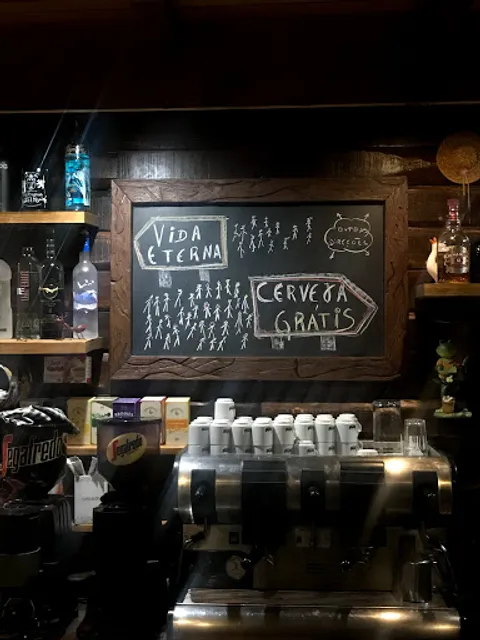 VIDA
ETERNA
OUTRAS
DIRECÇÕES
CERVEJA
GRÁTIS
Segafredo
Segafredo